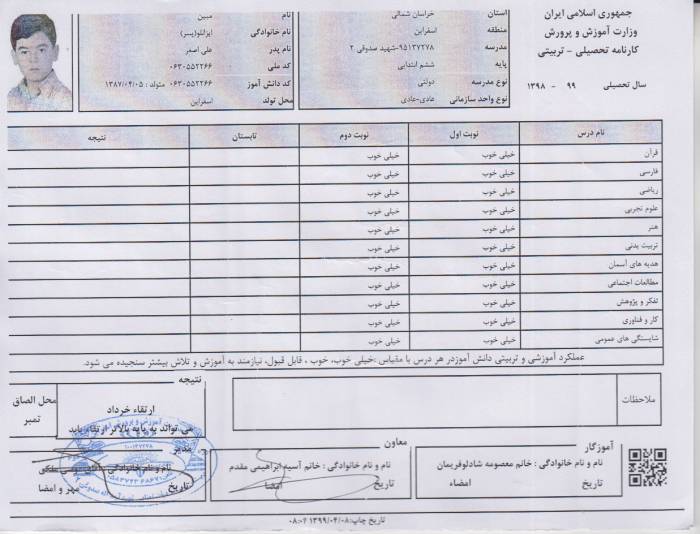 جمهوری اسلامی ایران
وزارت آموزش و پرورش
کارنامه تحصیلی - تربیتی
سال تحصیلی ۹۹ - ۱۳۹۸
استان خراسان شمالی
منطقه اسفراین
مدرسه ۹۵۱۳۷۲۷۸-شهید صدوقی ۲
پایه ششم ابتدایی
نوع مدرسه دولتی
نوع واحد سازمانی عادی-عادی
نام مبین
نام خانوادگی ایزانلو(پسر)
نام پدر علی اصغر
کد ملی ۰۶۳۰۵۵۲۲۶۶
کد دانش آموز ۰۶۳۰۵۵۲۲۶۶ متولد : ۱۳۸۷/۰۴/۰۵
محل تولد اسفراین
نام درس نوبت اول نوبت دوم تابستان نتیجه
قرآن خیلی خوب خیلی خوب
فارسی خیلی خوب خیلی خوب
ریاضی خیلی خوب خیلی خوب
علوم تجربی خیلی خوب خیلی خوب
هنر خیلی خوب خیلی خوب
تربیت بدنی خیلی خوب خیلی خوب
هدیه های آسمان خیلی خوب خیلی خوب
مطالعات اجتماعی خیلی خوب خیلی خوب
تفکر و پژوهش خیلی خوب خیلی خوب
کار و فناوری خیلی خوب خیلی خوب
شایستگی های عمومی خیلی خوب خیلی خوب
عملکرد آموزشی و تربیتی دانش آموزدر هر درس با مقیاس :خیلی خوب، خوب ، قابل قبول، نیازمند به آموزش و تلاش بیشتر سنجیده می شود.
ملاحظات
نتیجه
ارتقاء خرداد
می تواند به پایه بالاتر ارتقاء یابد
محل الصاق
تمبر
آموزگار
نام و نام خانوادگی : خانم معصومه شادلوفریمان
تاریخ امضاء
معاون
نام و نام خانوادگی : خانم آسیه ابراهیمی مقدم
تاریخ امضا
مدیر
نام و نام خانوادگی
تاریخ مهر و امضا
تاریخ چاپ:۱۳۹۹/۰۴/۰۸